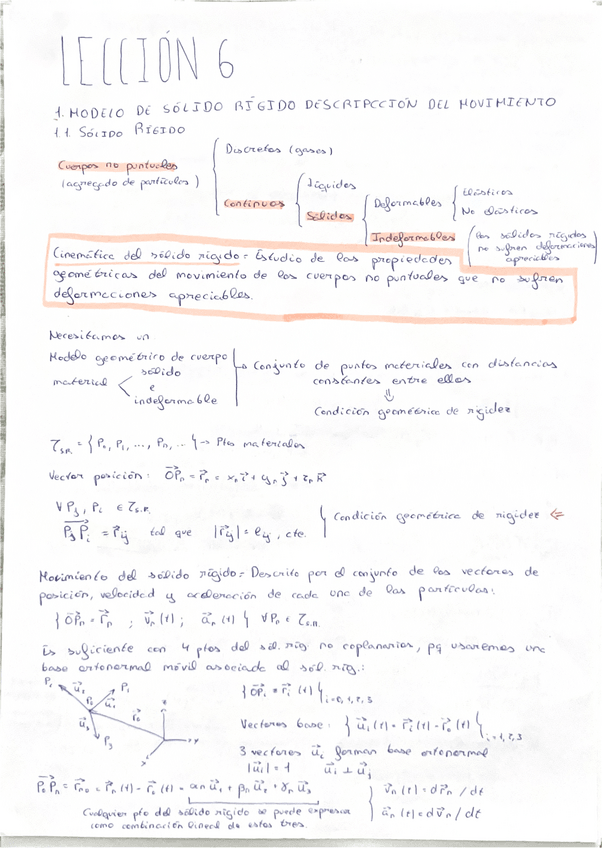 LECCIÓN 6
1. MODELO DE SÓLIDO RÍGIDO DESCRIPCCIÓN DEL MOVIMIENTO
1.1. SÓLIDO RÍGIDO
Cuerpos no puntuales
(agregado de partículas)
Discretos (gases)
Continuos
Líquidos
Sólidos
Deformables
Elásticos
No elásticos
Indeformables
(Los sólidos rígidos
no sufren deformaciones
apreciables)
Cinemática del sólido rígido = Estudio de las propiedades
geométricas del movimiento de los cuerpos no puntuales que no sufren
deformaciones apreciables.
Necesitamos un
Modelo geométrico de cuerpo
material < sólido
e
indeformable
↳ Conjunto de puntos materiales con distancias
constantes entre ellos
⇓
Condición geométrica de rigidez
τ_S.R. = { P₀, P₁, ..., Pₙ, ... } → Ptos materiales
Vector posición: OPₙ = rₙ = xₙ i + yₙ j + zₙ k
∀ Pj, Pi ∈ τ_S.R.
PjPi = rij tal que |rij| = eij, cte.
Condición geométrica de rigidez ⇐
Movimiento del sólido rígido = Descrito por el conjunto de los vectores de
posición, velocidad y aceleración de cada una de las partículas:
{ OPₙ = rₙ ; vₙ(t) ; aₙ(t) } ∀ Pₙ ∈ τ_S.R.
Es suficiente con 4 ptos del sól. rig no coplanarios, pq usaremos una
base ortonormal móvil asociada al sól. rig.:
P₂ u₂ P₁ u₁ P₀ r₀ u₃ P₃ z x y
{ OPi = ri (t) } i=0,1,2,3
Vectores base: { ui(t) = ri(t) - r₀(t) } i=1,2,3
3 vectores ui forman base ortonormal
|ui| = 1 ui ⊥ uj
P₀Pₙ = rₙ₀ = rₙ(t) - r₀(t) = αₙ u₁ + βₙ u₂ + γₙ u₃
Cualquier pto del sólido rígido se puede expresar
como combinación lineal de estos tres.
vₙ(t) = d rₙ / dt
aₙ(t) = d vₙ / dt